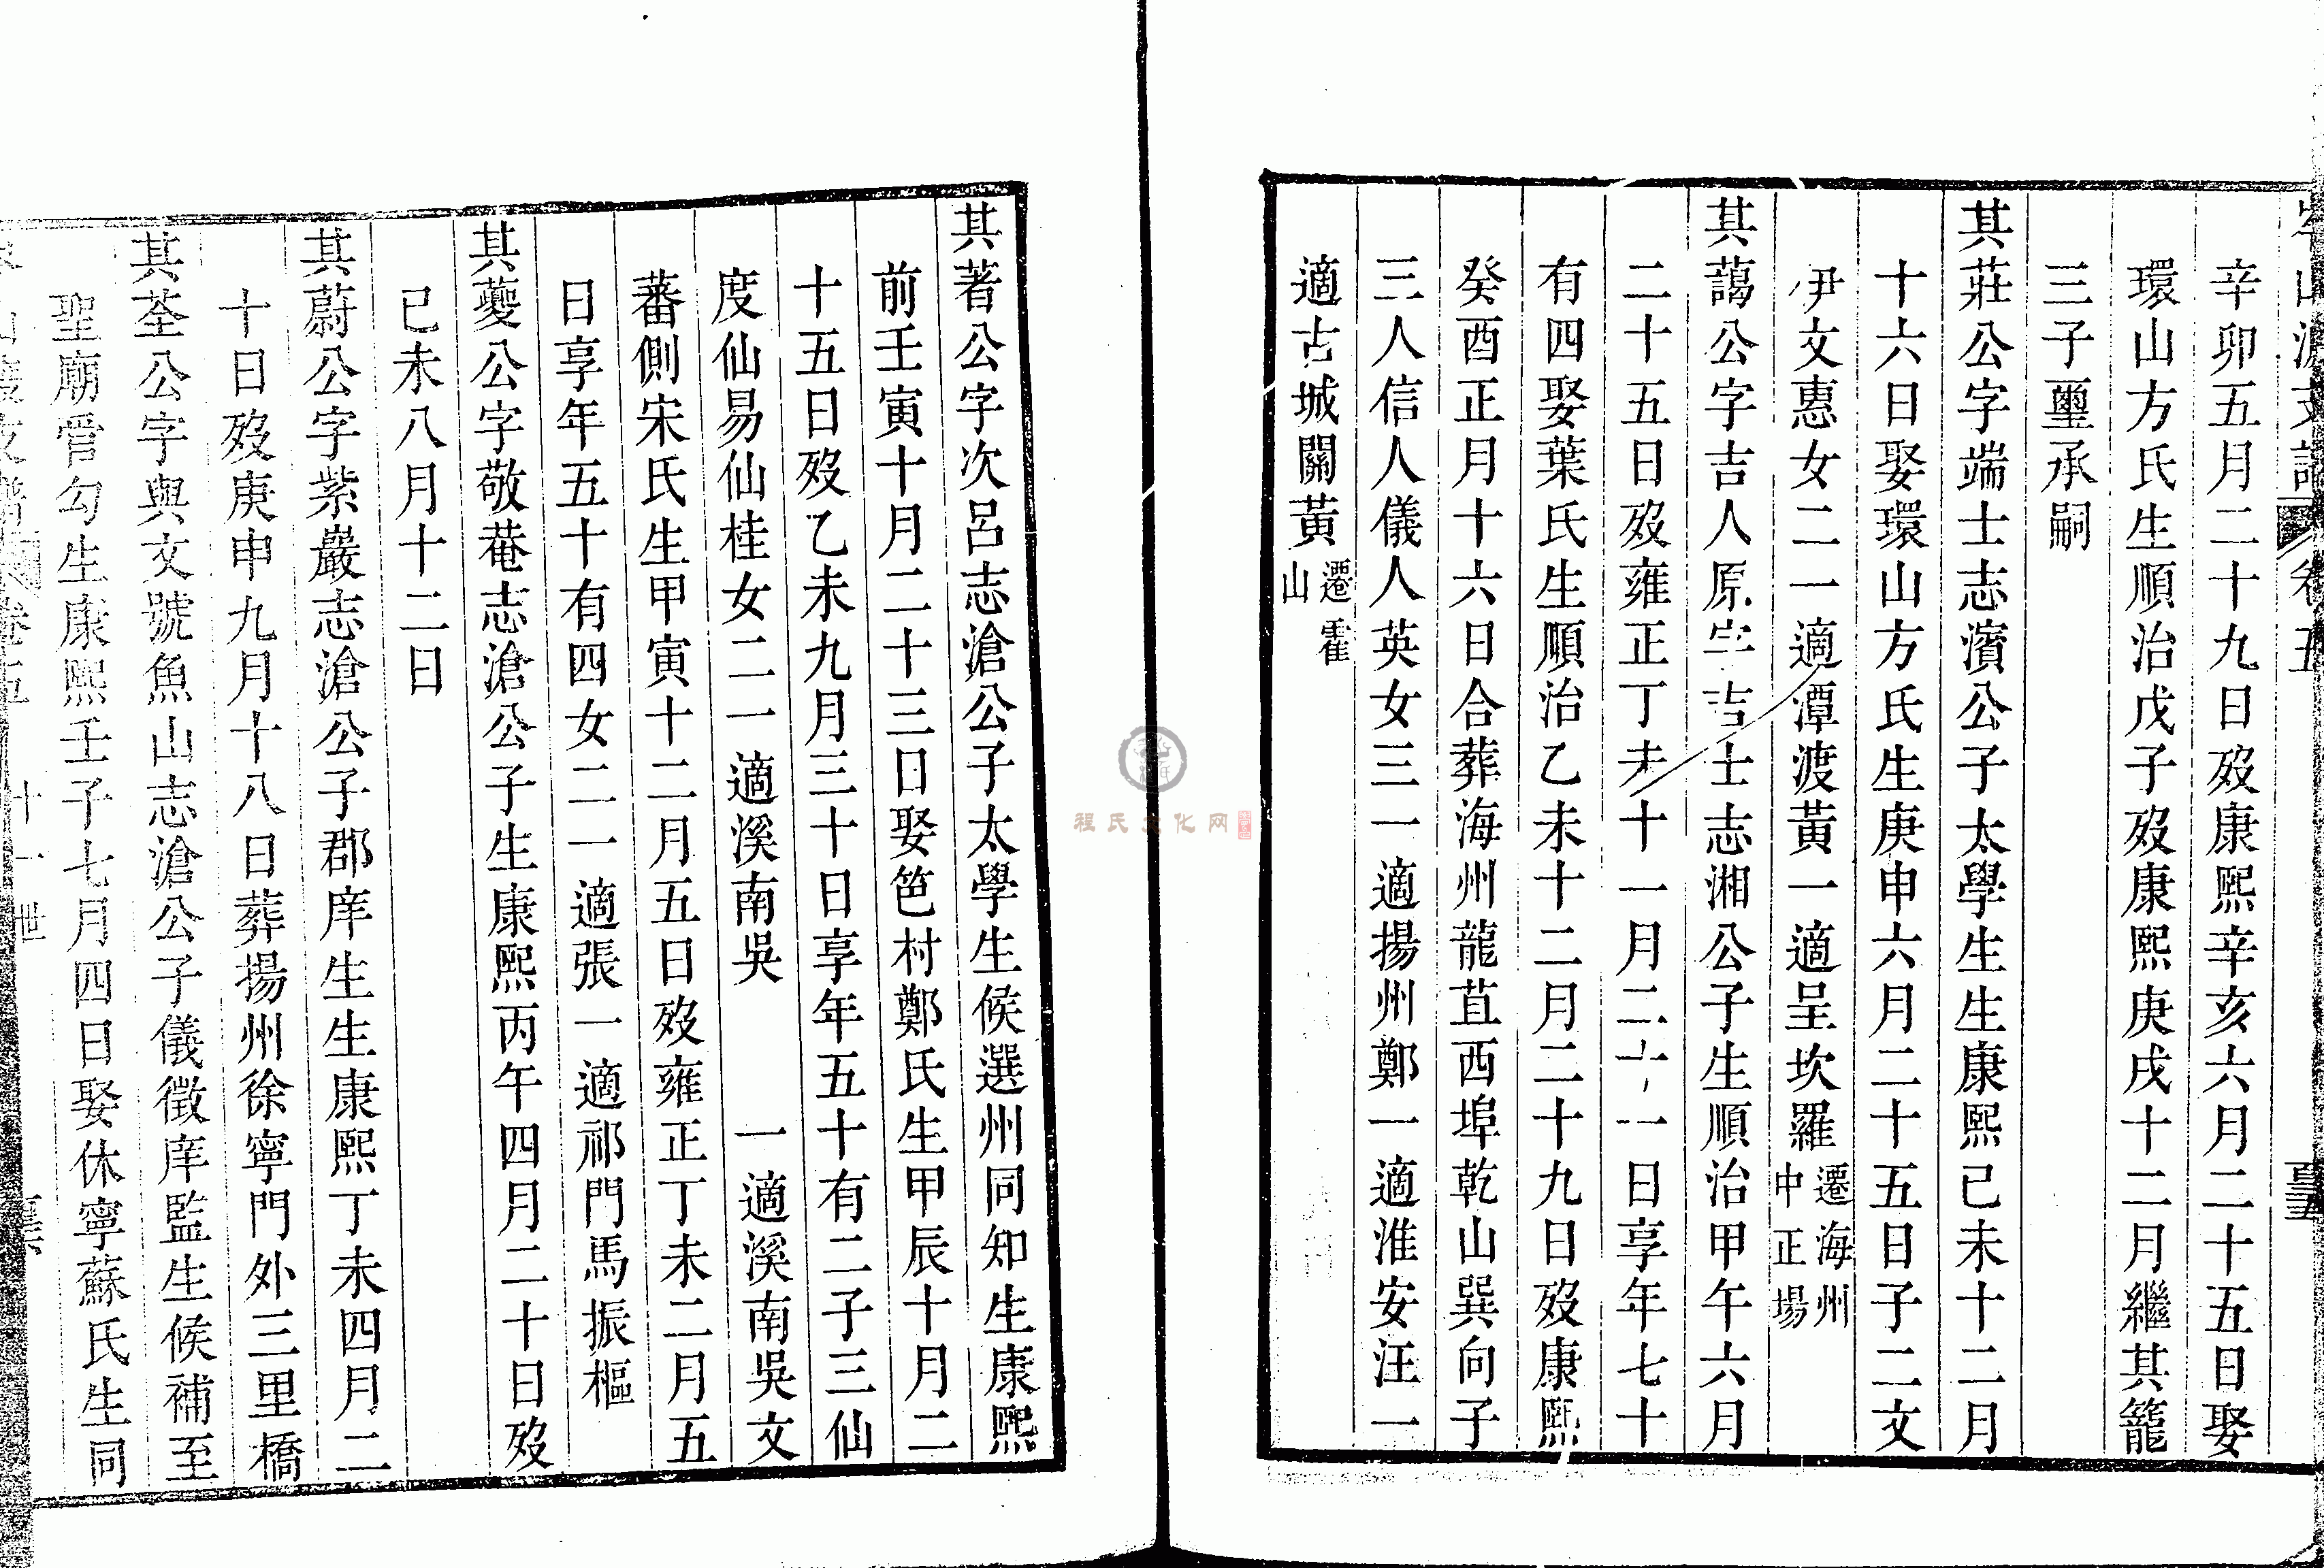 辛卯五月二十九日歿康熙辛亥六月二十五日娶
環山方氏生順治戊子歿康熙庚戌十二月繼其籠
三子璽承嗣
其莊公字端士志濱公子太學生生康熙己未十二月
十六日娶環山方氏生庚申六月二十五日子二文
伊文惠女二一適潭渡黃一適呈坎羅遷海州中正場
其藹公字吉人原字吉士志湘公子生順治甲午六月
二十五日歿雍正丁未十一月二十一日享年七十
有四娶葉氏生順治乙未十二月二十九日歿康熙
癸酉正月十六日合葬海州龍苴西埠乾山巽向子
三人信人儀人英女三一適揚州鄭一適淮安汪一
適古城關黃遷霍山
其著公字次呂志滄公子太學生候選州同知生康熙
前壬寅十月二十三日娶笆村鄭氏生甲辰十月二
十五日歿乙未九月三十日享年五十有二子三仙
度仙易仙桂女二一適溪南吳 一適溪南吳文
蕃側宋氏生甲寅十二月五日歿雍正丁未二月五
日享年五十有四女二一適張一適祁門馬振樞
其蘷公字敬菴志滄公子生康熙丙午四月二十日歿
己未八月十二日
其蔚公字紫巖志滄公子郡庠生生康熙丁未四月二
十日歿庚申九月十八日葬揚州徐寧門外三里橋
其荃公字與文號魚山志滄公子儀徵庠監生候補至
聖廟晉勾生康熙壬子七月四日娶休寧蘇氏生同
卷五 十一世
程氏文化网